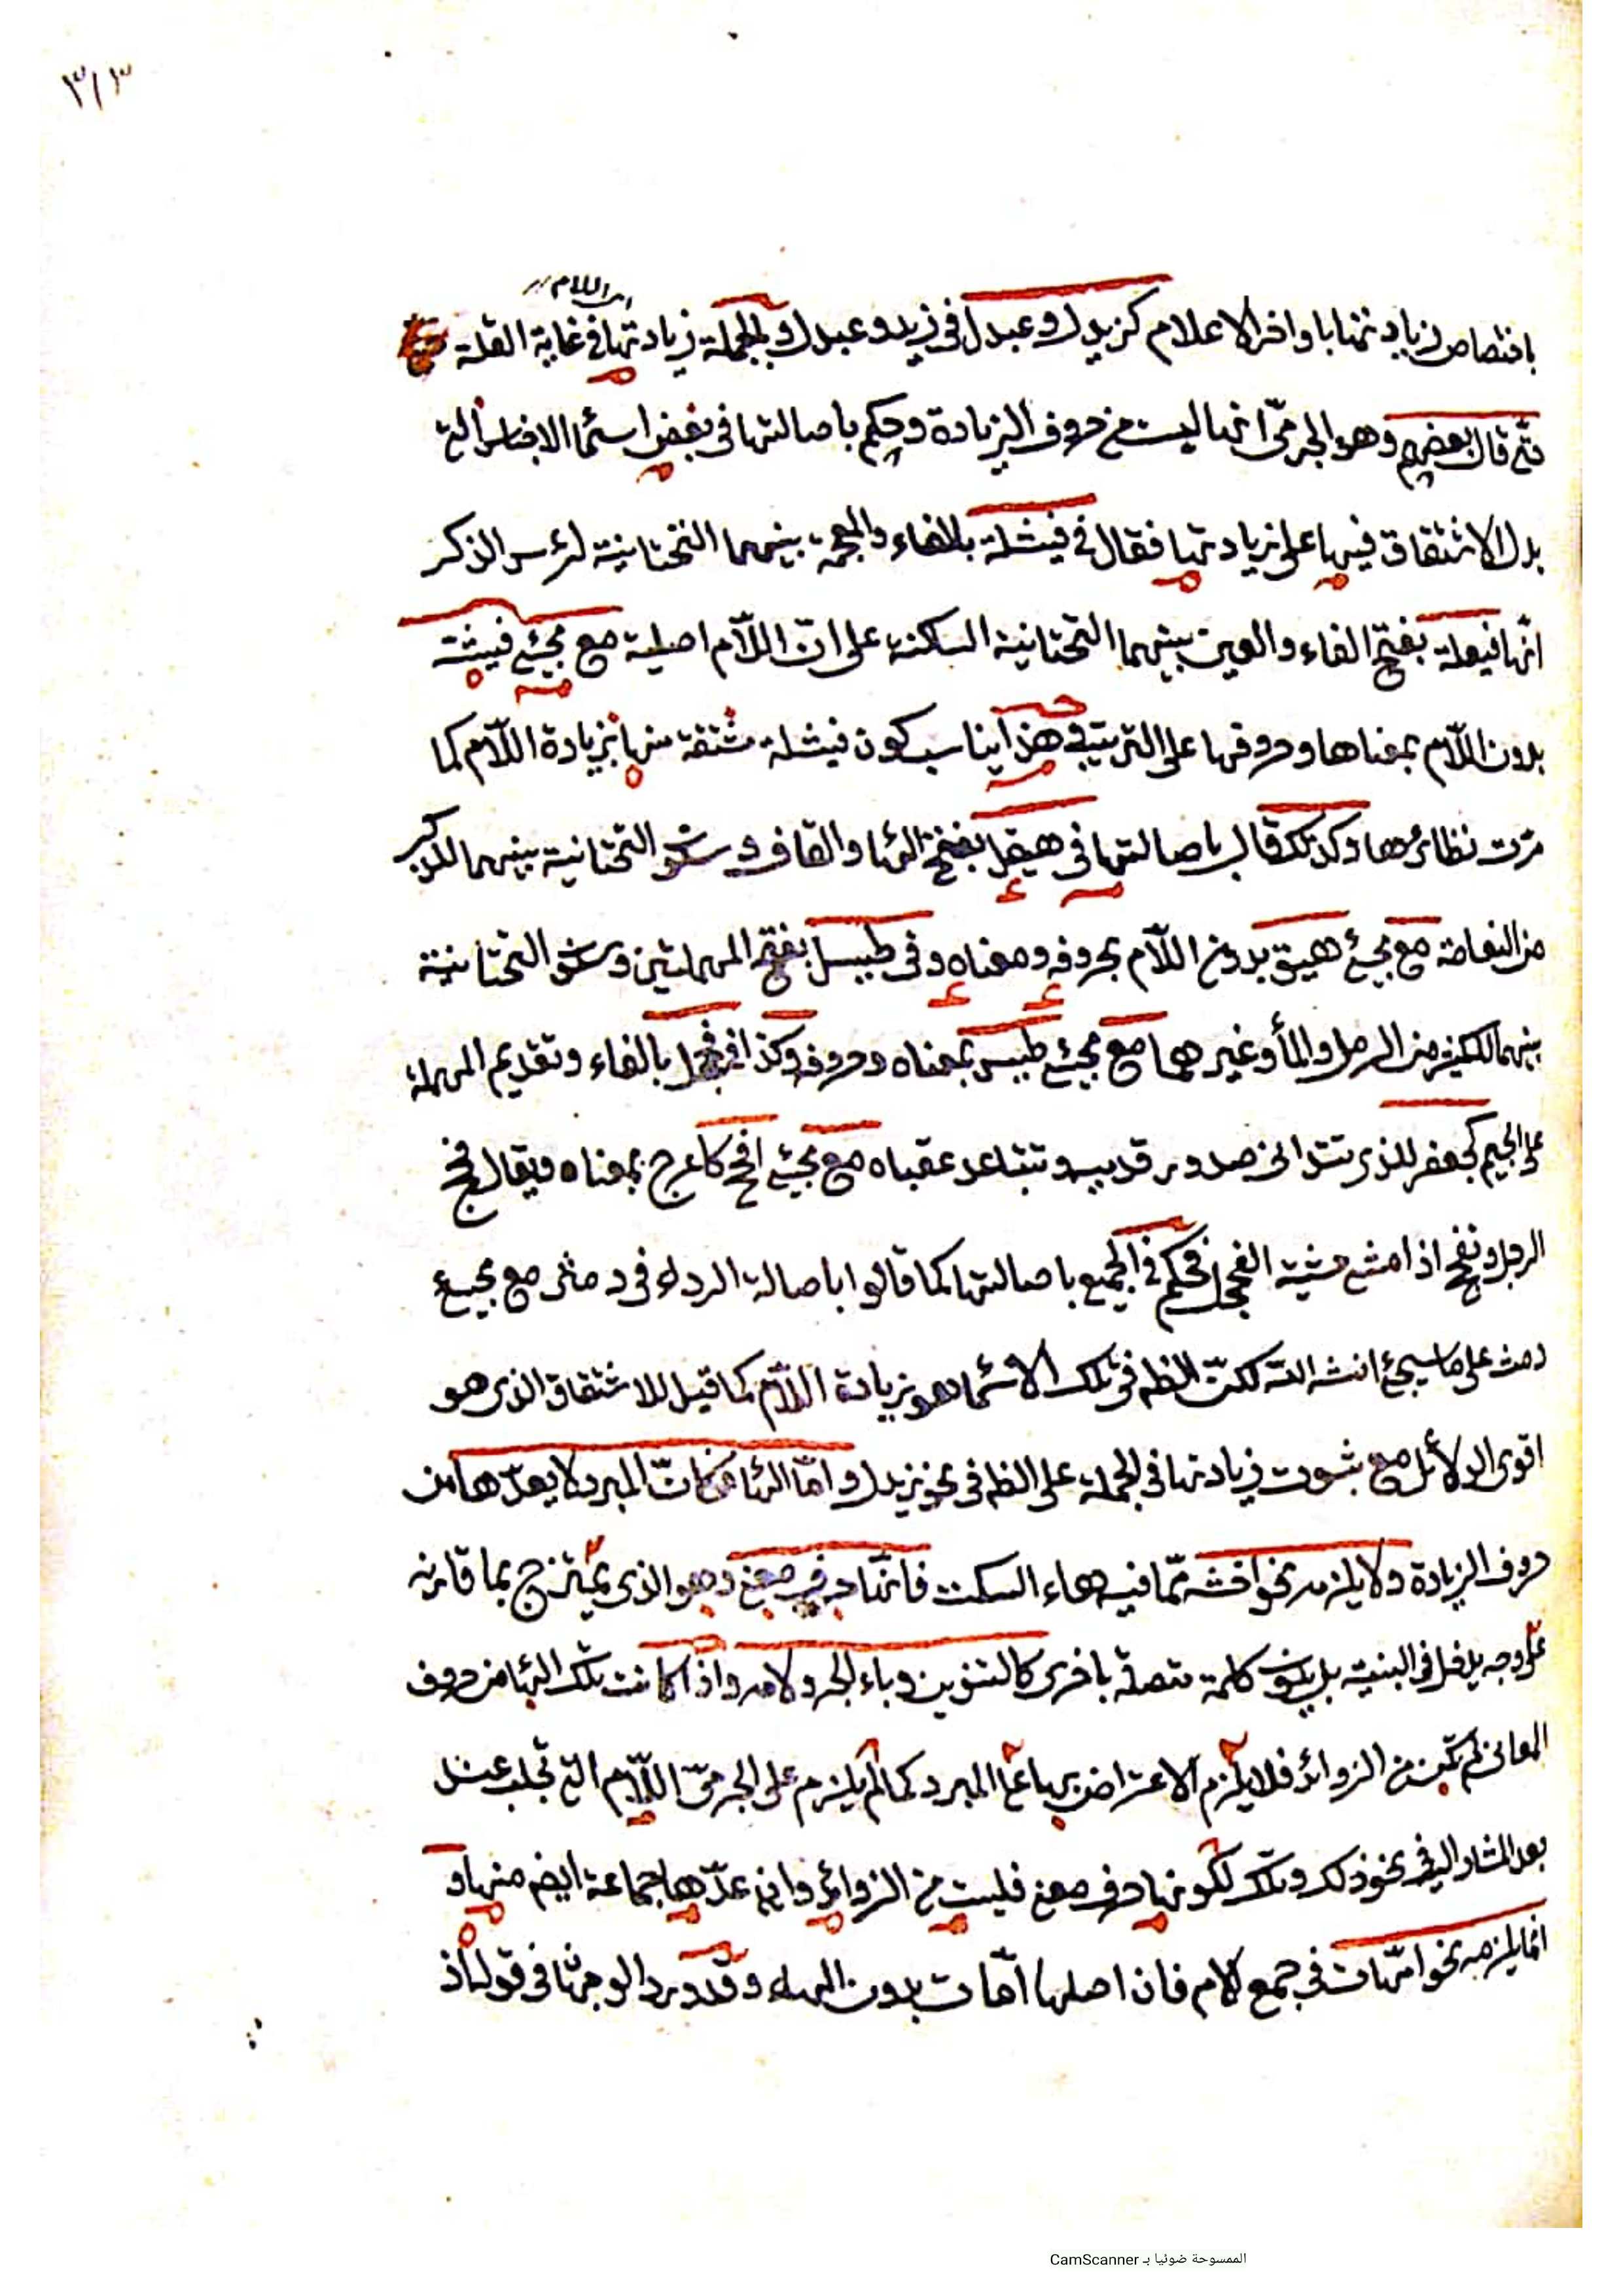 ٣١٣
اى اللام
باختصاص زيادتها باواخر الاعلام كزيدل وعبدل فى زيد وعبد وبالجملة زيادتها فى غاية القلة
حتى قال بعضهم وهو الجرمىّ انها ليست من حروف الزيادة وحكم باصالتها فى بعض اسماء الاجناس التى
يدل الاشتقاق فيها على زيادتها فقال فى فيشلة بالفاء والمعجمة بينهما التحتانية لرئس الذكر
انّها فيعلة بفتح الفاء والعين بينهما التحتانية الساكنة على انّ اللّام اصلية مع مجئ فيشة
بدون اللّام بمعناها وحروفها على الترتيب فى هذا يناسب كون فيشلة مشتقة منها بزيادة اللّام كما
مرّت نظائرها وكذلك قال باصالتها فى هيقل بفتح الهاء والقاف وسكون التحتانية بينهما للذكر
من النعامة مع مجئ هيق بدون اللّام بحروفه ومعناه وفى طيسل بفتح المهملتين وسكون التحتانية
بينهما للكثير من الرمل والماء وغيرهما مع مجئ طيس بمعناه وحروفه وكذا فى فحجل بالفاء وتقديم المهملة
على الجيم كجعفر للذى تتدانى صدور قدميه وتتباعد عقباه مع مجئ افحج كاعرج بمعناه ويقال فحج
الرجل وتفحج اذا مشى مشية الفحجل فحكم فى الجميع باصالتها كما قالوا باصالة الراء فى دمثر مع مجئ
دمث على ما سيجئ انشاء الله لكنّ الظاهر فى تلك الاسماء هو زيادة اللّام كما قيل للاشتقاق الذى هو
اقوى الدلائل مع ثبوت زيادتها فى الجملة على الظاهر فى نحو زيدل وامّا الهاء فكانّ المبرد لا يعدّها من
حروف الزيادة ولا يلزمه نحو اخشه ممّا فيه هاء السكت فانّها حرف معنى وهو الذى يمتزج بما قارنه
على وجه يدخل فى البنية بل يكون كلمة متصلة باخرى كالتنوين وباء الجر ولامه واذا كانت تلك الهاء من حروف
المعانى لم تكن من الزوائد فلا يلزم الاعتراض بها على المبرد كما لم يلزم على الجرمىّ اللّام التى تجلب عند
بعد المشار اليه فى نحو ذلك وتلك لكونها حرف معنى فليست من الزوائد وان عدّها جماعة ايض منها و
انما يلزمه نحو امّهات فى جمع لام فان اصلها امّات بدون الهاء وقد ورد الوجهان فى قوله اذ
الممسوحة ضوئيا بـ CamScanner